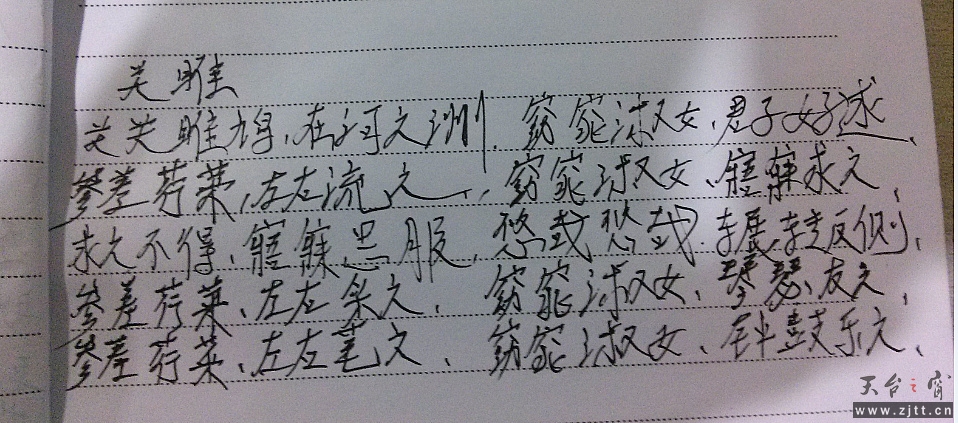 关雎
关关雎鸠、在河之洲、窈窕淑女、君子好逑、
参差荇菜、左右流之、窈窕淑女、寤寐求之
求之不得、寤寐思服、悠哉悠哉、辗转反侧、
参差荇菜、左右采之、窈窕淑女、琴瑟友之、
参差荇菜、左右芼之、窈窕淑女、钟鼓乐之、
天台之窗
www.zjtt.cn